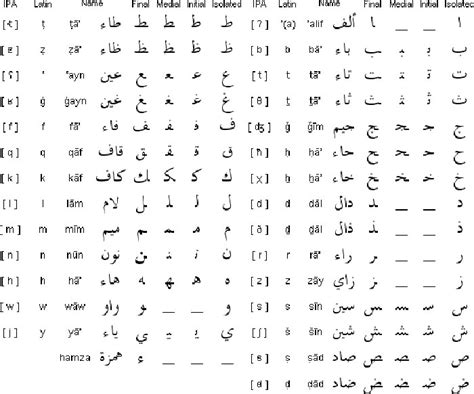 IPA Latin Name Final Medial Initial Isolated IPA Latin Name Final Medial Initial Isolated
ṭ ṭā' طاء ـط ـطـ طـ ط [ʔ] '(a) 'alif ألف ـا __ __ ا
ẓ ẓā' ظاء ـظ ـظـ ظـ ظ [b] b bā' باء ـب ـبـ بـ ب
[ʕ] ' 'ayn عين ـع ـعـ عـ ع [t] t tā' تاء ـت ـتـ تـ ت
[ʁ] ġ ġayn غين ـغ ـغـ غـ غ [θ] ṯ ṯā' ثاء ـث ـثـ ثـ ث
[f] f fā' فاء ـف ـفـ فـ ف [ʤ] ǧ ǧīm جيم ـج ـجـ جـ ج
[q] q qāf قاف ـق ـقـ قـ ق [ħ] ḥ ḥā' حاء ـح ـحـ حـ ح
[k] k kāf كاف ـك ـكـ كـ ك [χ] ḫ ḫā' خاء ـخ ـخـ خـ خ
[l] l lām لام ـل ـلـ لـ ل [d] d dāl دال ـد __ __ د
[m] m mīm ميم ـم ـمـ مـ م [ð] ḏ ḏāl ذال ـذ __ __ ذ
[n] n nūn نون ـن ـنـ نـ ن [r] r rā' راء ـر __ __ ر
[h] h hā' هاء ـه ـهـ هـ ه [z] z zāy زاي ـز __ __ ز
[w] w wāw واو ـو __ __ و [s] s sīn سين ـس ـسـ سـ س
[j] y yā' ياء ـي ـيـ يـ ي [ʃ] š šīn شين ـش ـشـ شـ ش
hamza همزة ء __ __ __ ṣ ṣād صاد ـص ـصـ صـ ص
ḍ ḍād ضاد ـض ـضـ ضـ ض